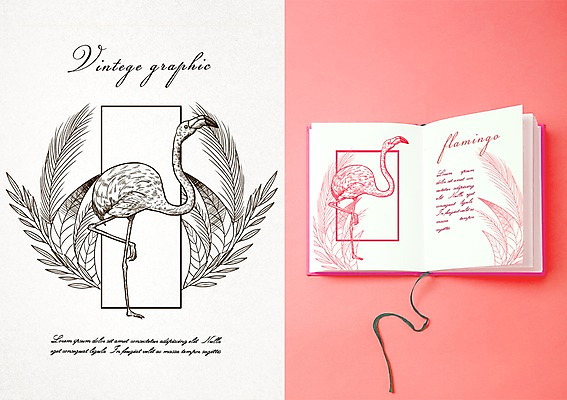 Vintege graphic
Lorem ipsum dolor sit amet consectetur adipiscing elit. Nulla
eget consequat ligula. In feugiat velit ac massa tempor sagittis
flamingo
Lorem ipsum
dolor sit amet
consectetur adipiscing
elit. Nulla eget
consequat ligula.
In feugiat velit ac
massa tempor
sagittis